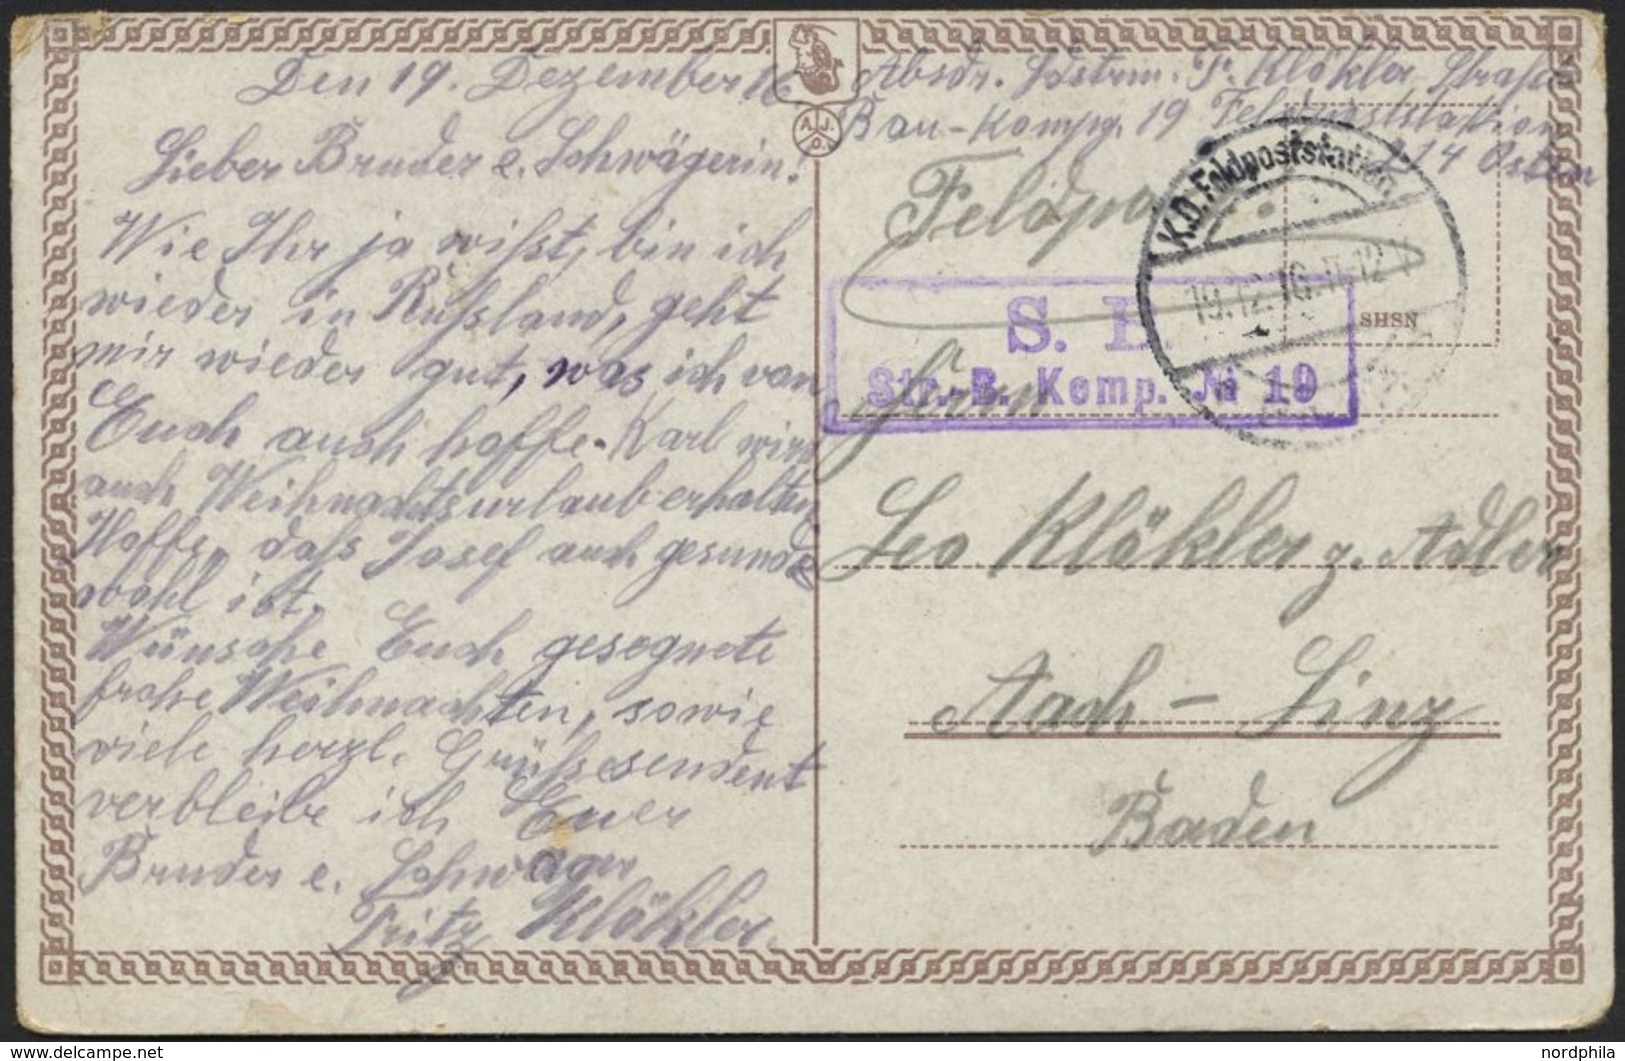 Den 19. Dezember 16
Lieber Bruder e. Schwägerin!
Wie Ihr ja wißt, bin ich
wieder in Rußland, geht
mir wieder gut, was ich von
Euch auch hoffe. Karl wird
auch Weihnachtsurlaub erhalten
Hoffe, daß Josef auch gesund e
wohl ist.
Wünsche Euch gesegnete
frohe Weihnachten, sowie
viele herzl. Grüße sendent
verbleibe ich Euer
Bruder e. Schwager
Fritz Klökler.
A. J. D.
Absdr. Ldstrm. F. Klökler Straße
Bau-Kompg. 19 Feldpoststation
214 Osten
Feldpost
K.D. Feldpoststation
19.12.16. 11-12
SHSN
S. B.
Str.-B. Komp. № 19
Herrn
Leo Klökler z. Adler
Aach-Linz
Baden
nordphila